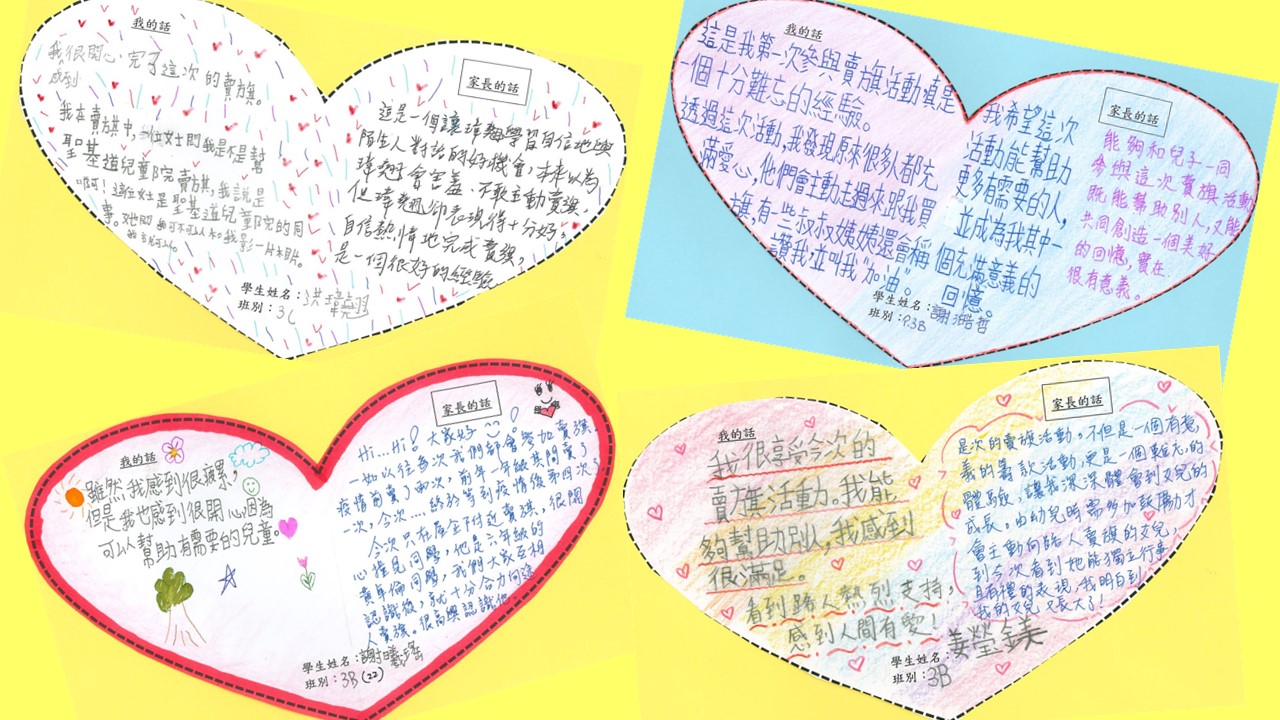 我的話
我很開心,完了這次的賣旗。
感到
我在賣旗中,一位女士問我是不是幫
聖基道兒童院賣旗,我說是
啊!這位女士是聖基道兒童院的同
事。她問我可不可以人和我影一片相片。
我說可以。
家長的話
這是一個讓瑋翹學習自信地與
陌生人對話的好機會,本來以為
瑋翹會害羞、不敢主動賣旗,
但瑋翹卻表現得十分好,
自信熱情地完成賣旗,
是一個很好的經驗
學生姓名:洪瑋翹
班別:3C
我的話
這是我第一次參與賣旗活動,真是
一個十分難忘的經驗。
透過這次活動,我發現原來很多人都充
滿愛心,他們會主動走過來跟我買
旗,有一些叔叔姨姨還會稱
讚我,並叫我"加油"。
我希望這次
活動能幫助
更多有需要的人,
並成為我其中一
個充滿意義的
回憶。
家長的話
能夠和兒子一同
參與這次賣旗活動
既能幫助別人,又能
共同創造一個美好
的回憶,實在
很有意義。
學生姓名:謝浩哲
班別:P.3B
我的話
雖然我感到很疲累,
但是我也感到很開心因為
可以幫助有需要的兒童。
家長的話
Hi...Hi! 大家好 !
一如以往每次我們都會參加賣旗.
疫情前賣了兩次,前年一年級其間賣了
次,今次...終於等到疫情後第四次了
今次只在屋企附近賣旗,很開
心撞見同學,他是三年級的
黃年倫同學,我們大家互相
認識後,就十分合力向途
人賣旗。很高興認識佢
學生姓名:謝曦瑤
班別:3B(22)
我的話
我很享受今次的
賣旗活動。我能
夠幫助別人,我感到
很滿足。
看到路人熱烈支持,
感到人間有愛!
家長的話
是次的賣旗活動,不但是一個有意
義的籌款活動,更是一個難充的
體驗,讓我深深體會到女兒的
成長。由幼兒時需多加鼓勵才
會主動向路人賣旗的女兒,
到今次看到她能獨立行事
且有禮的表現,我明白到
我的女兒又長大了!
學生姓名:姜瑩鎂
班別:3B